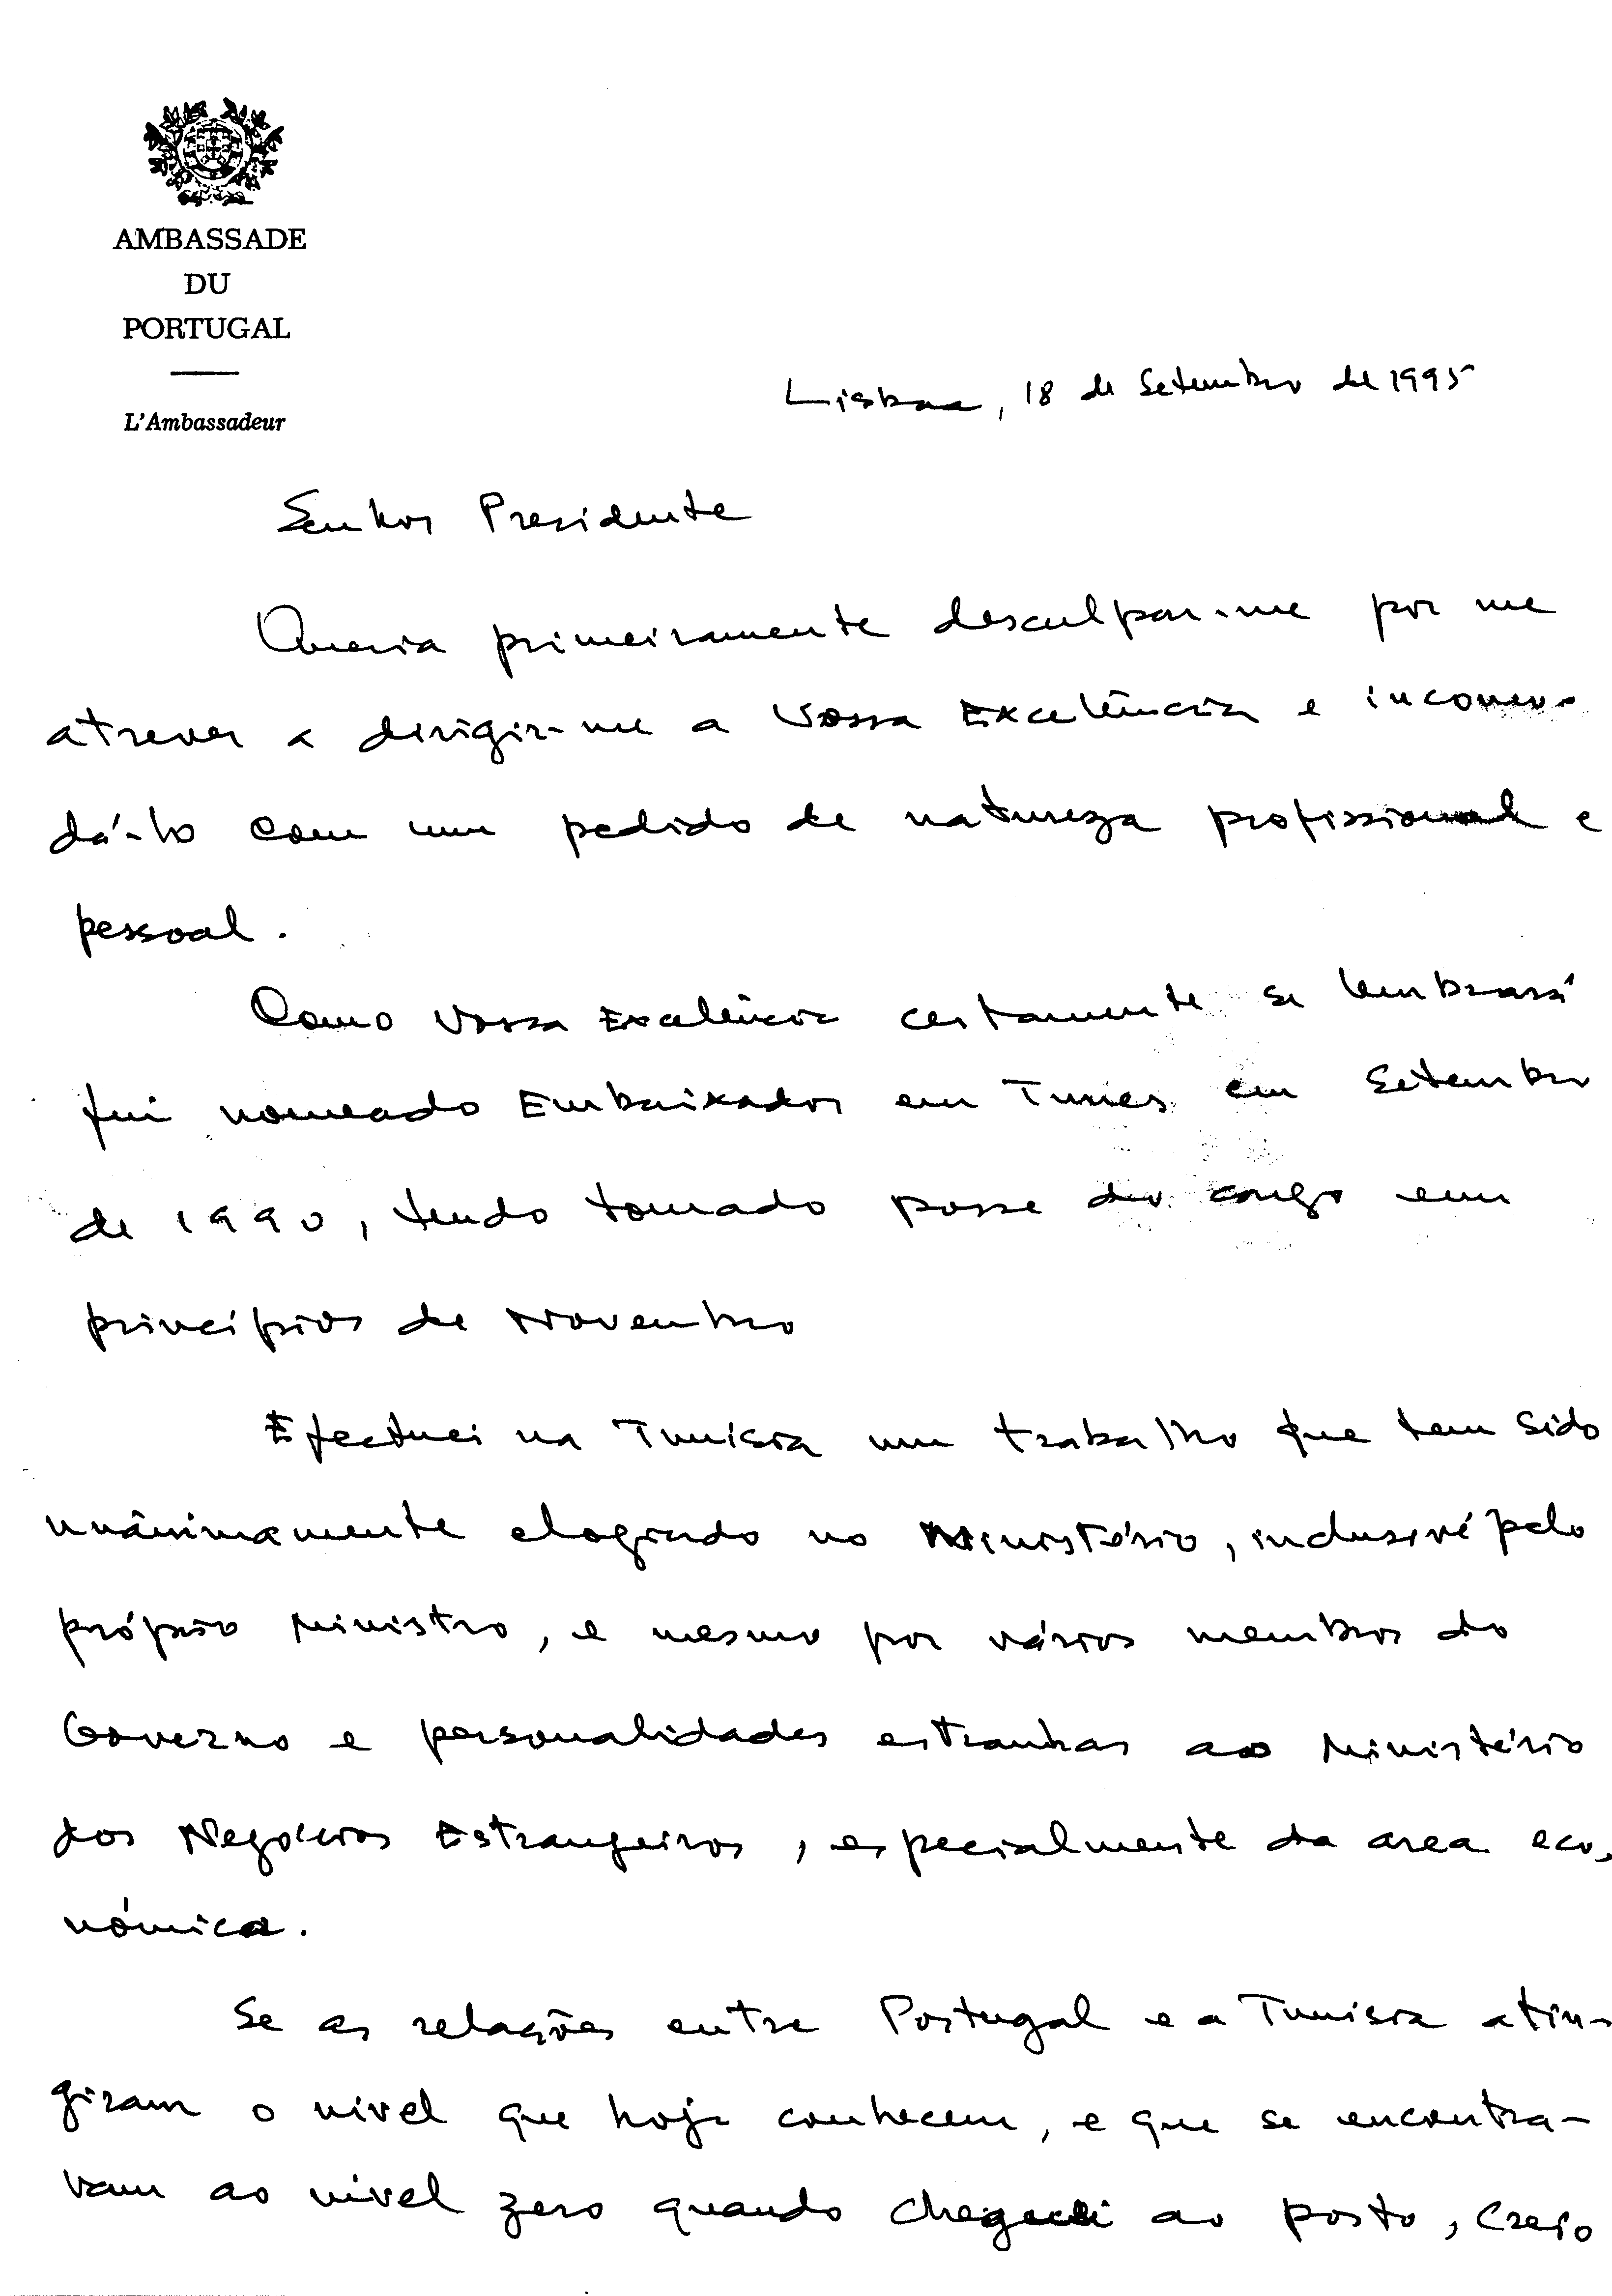 AMBASSADE
DU
PORTUGAL
L'Ambassadeur
Lisboa, 18 de Setembro de 1995
Senhor Presidente
Queria primeiramente desculpar-me por me
atrever a dirigir-me a Vossa Excelência e incomo-
dá-lo com um pedido de natureza profissional e
pessoal.
Como Vossa Excelência certamente se lembrará
fui nomeado Embaixador em Tunes em Setembro
de 1990, tendo tomado posse do cargo em
princípios de Novembro
Efectuei na Tunísia um trabalho que tem sido
unânimamente elogiado no Ministério, inclusivé pelo
próprio Ministro, e mesmo por vários membros do
Governo e personalidades estranhas ao Ministério
dos Negócios Estrangeiros, especialmente da area eco-
nómica.
Se as relações entre Portugal e a Tunísia atin-
giram o nivel que hoje conhecem, e que se encontra-
vam ao nivel zero quando cheguei ao posto, creio